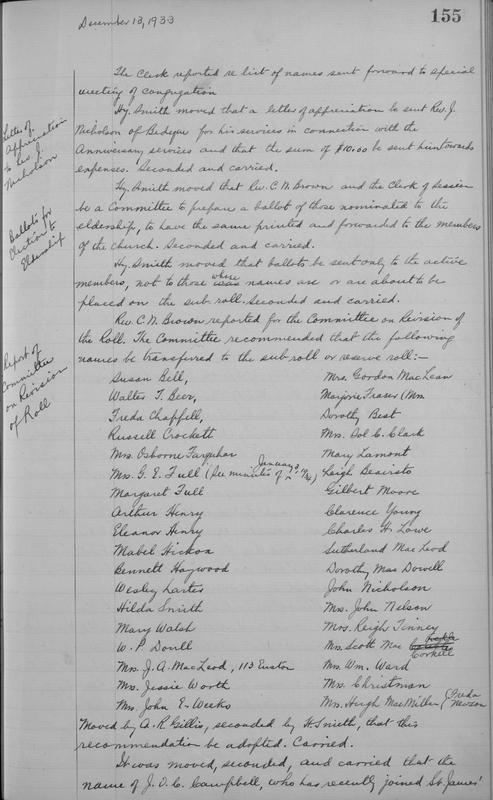 155
December 13, 1933
The Clerk reported re list of names sent forward to special
meeting of congregation
Letter of
Appreciation
to Rev. J.
Nicholson
Hy. Smith moved that a letter of appreciation be sent Rev. J.
Nicholson of Bedeque for his services in connection with the
Anniversary services and that the sum of $10.00 be sent him towards
expenses. Seconded and carried.
Ballots for
Election to
Eldership
Hy. Smith moved that Rev. C. N. Brown and the Clerk of Session
be a Committee to prepare a ballot of those nominated to the
eldership, to have the same printed and forwarded to the members
of the church. Seconded and carried.
Hy. Smith moved that ballots be sent only to the active
members, not to those whose names are or are about to be
placed on the sub roll. Seconded and carried.
Report of
Committee
on Revision
of Roll
Rev. C. N. Brown reported for the Committee on Revision of
the Roll. The Committee recommended that the following
names be transferred to the sub roll or reserve roll:-
Susan Bell,
Walter T. Beer,
Freda Chappell,
Russell Crockett
Mrs. Osborne Farquhar
Mrs. G. E. Full (See minutes of January
Margaret Full
Arthur Henry
Eleanor Henry
Mabel Hickox
Bennett Haywood
Wesley Lartes
Hilda Smith
Mary Walsh
W. P. Doull
Mrs. J. A. MacLeod, 113 Euston
Mrs. Jessie Worth
Mrs. John E. Weeks
Mrs. Gordon MacLean
Marjorie Fraser (Mrs
Dorothy Best
Mrs. Sol C. Clark
Mary Lamont
Leigh Besirsto
Gilbert Moore
Clarence Young
Charles H. Lowe
Sutherland MacLeod
Dorothy MacDowell
John Nicholson
Mrs. John Nelson
Mrs. Reigh Tinney
Mrs. Scott Mac Corkell
Mrs. Wm. Ward
Mrs. Christman
Mrs. Hugh MacMillan (Freda Newson
Moved by A. R. Gillis, seconded by H Smith, that this
recommendation be adopted. Carried.
It was moved, seconded, and carried that the
name of J. O. C. Campbell, who has recently joined St. James'